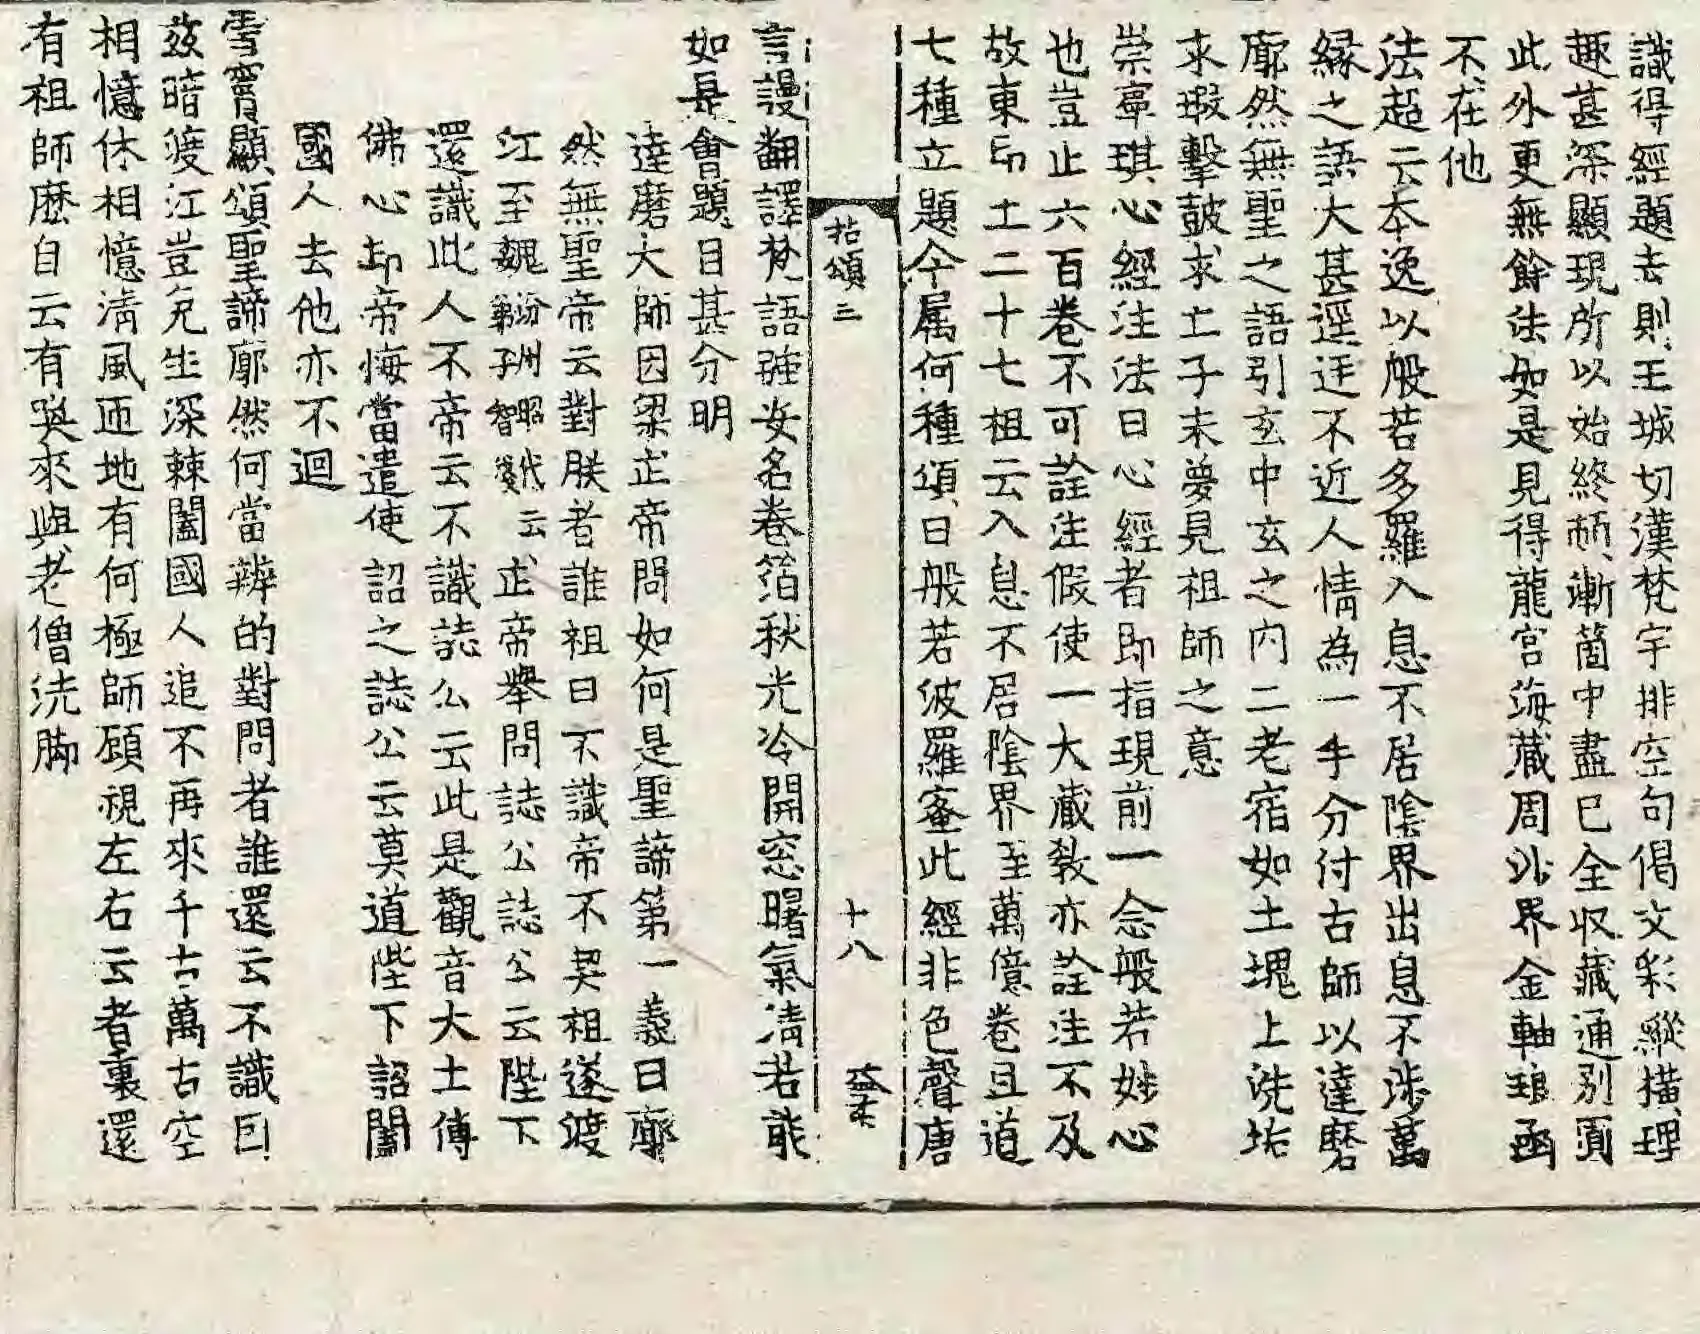 識得經題去則王城切漢梵宇排空句偈文彩縱橫理
趣甚深顯現所以始終頓漸箇中盡已全収藏通別圓
此外更無餘法如是見得龍宮海藏周沙界金軸琅函
不在他
法超云本逸以般若多羅入息不居陰界出息不涉萬
縁之語大甚逕迋不近人情為一手分付古師以達磨
廓然無聖之語引玄中玄之内二老宿如土塊上洗垢
求瑕擊皷求亡子未夢見祖師之意
崇寧琪心經注法曰心經者即指現前一念般若妙心
也豈止六百卷不可詮注假使一大藏教亦詮注不及
故東印土二十七祖云入息不居陰界至萬億卷且道
七種立題今属何種頌曰般若波羅蜜此經非色聲唐
拈頌三
十八
言謾翻譯梵語強安名卷箔秋光冷開窓曙氣清若能
如是會題目甚分明
達磨大師因梁武帝問如何是聖諦第一義曰廓
然無聖帝云對朕者誰祖曰不識帝不契祖遂渡
江至魏汾州昭代云第子智證武帝舉問誌公誌公云陛下
還識此人不帝云不識誌公云此是觀音大士傳
佛心印帝悔當遣使詔之誌公云莫道陛下詔闔
國人去他亦不迴
雪竇顯頌聖諦廓然何當辨的對問者誰還云不識因
茲暗渡江豈免生深棘闔國人追不再來千古萬古空
相憶休相憶淸風匝地有何極師顧視左右云者裏還
有祖師麽自云有喚來與老僧洗脚